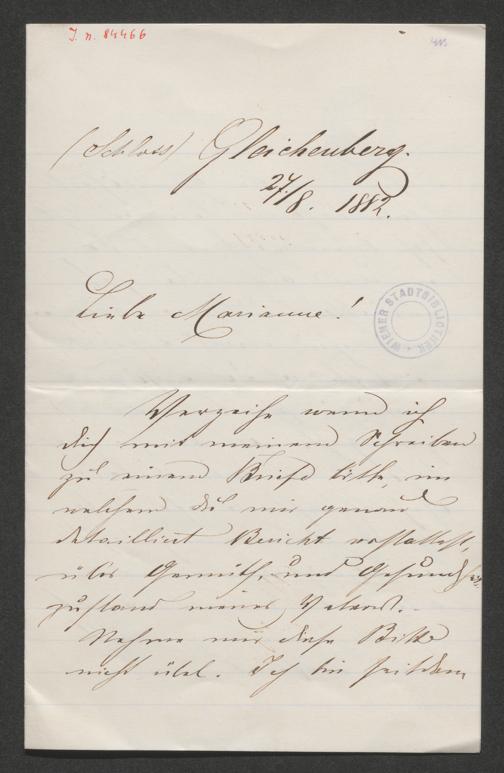 J. n. 84466
(Schloss) Gleichenberg.
27/8. 1882.
Liebe Marianne!
WIENER STADTBIBLIOTHEK
Verzeihe wenn ich
dich mit meinem Schreiben
zu einem Briefe bitte, in
welchem du mir genau
detaillirt Bericht erstattest,
über Gemüth, und Gesundheits-
zustand meines Vaters.
Nehme mir diese Bitte
nicht übel. Ich bin seitdem